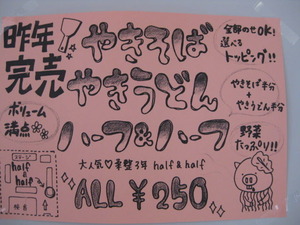 昨年
完売
やきそば
やきうどん
ハーフ&ハーフ
全部のせOK!
選べる
トッピング!!
やきそば半分
やきうどん半分
ボリューム
満点
野菜
たっぷり!!
大人気♡ 3年 half & half
ALL ¥250
half
&
half